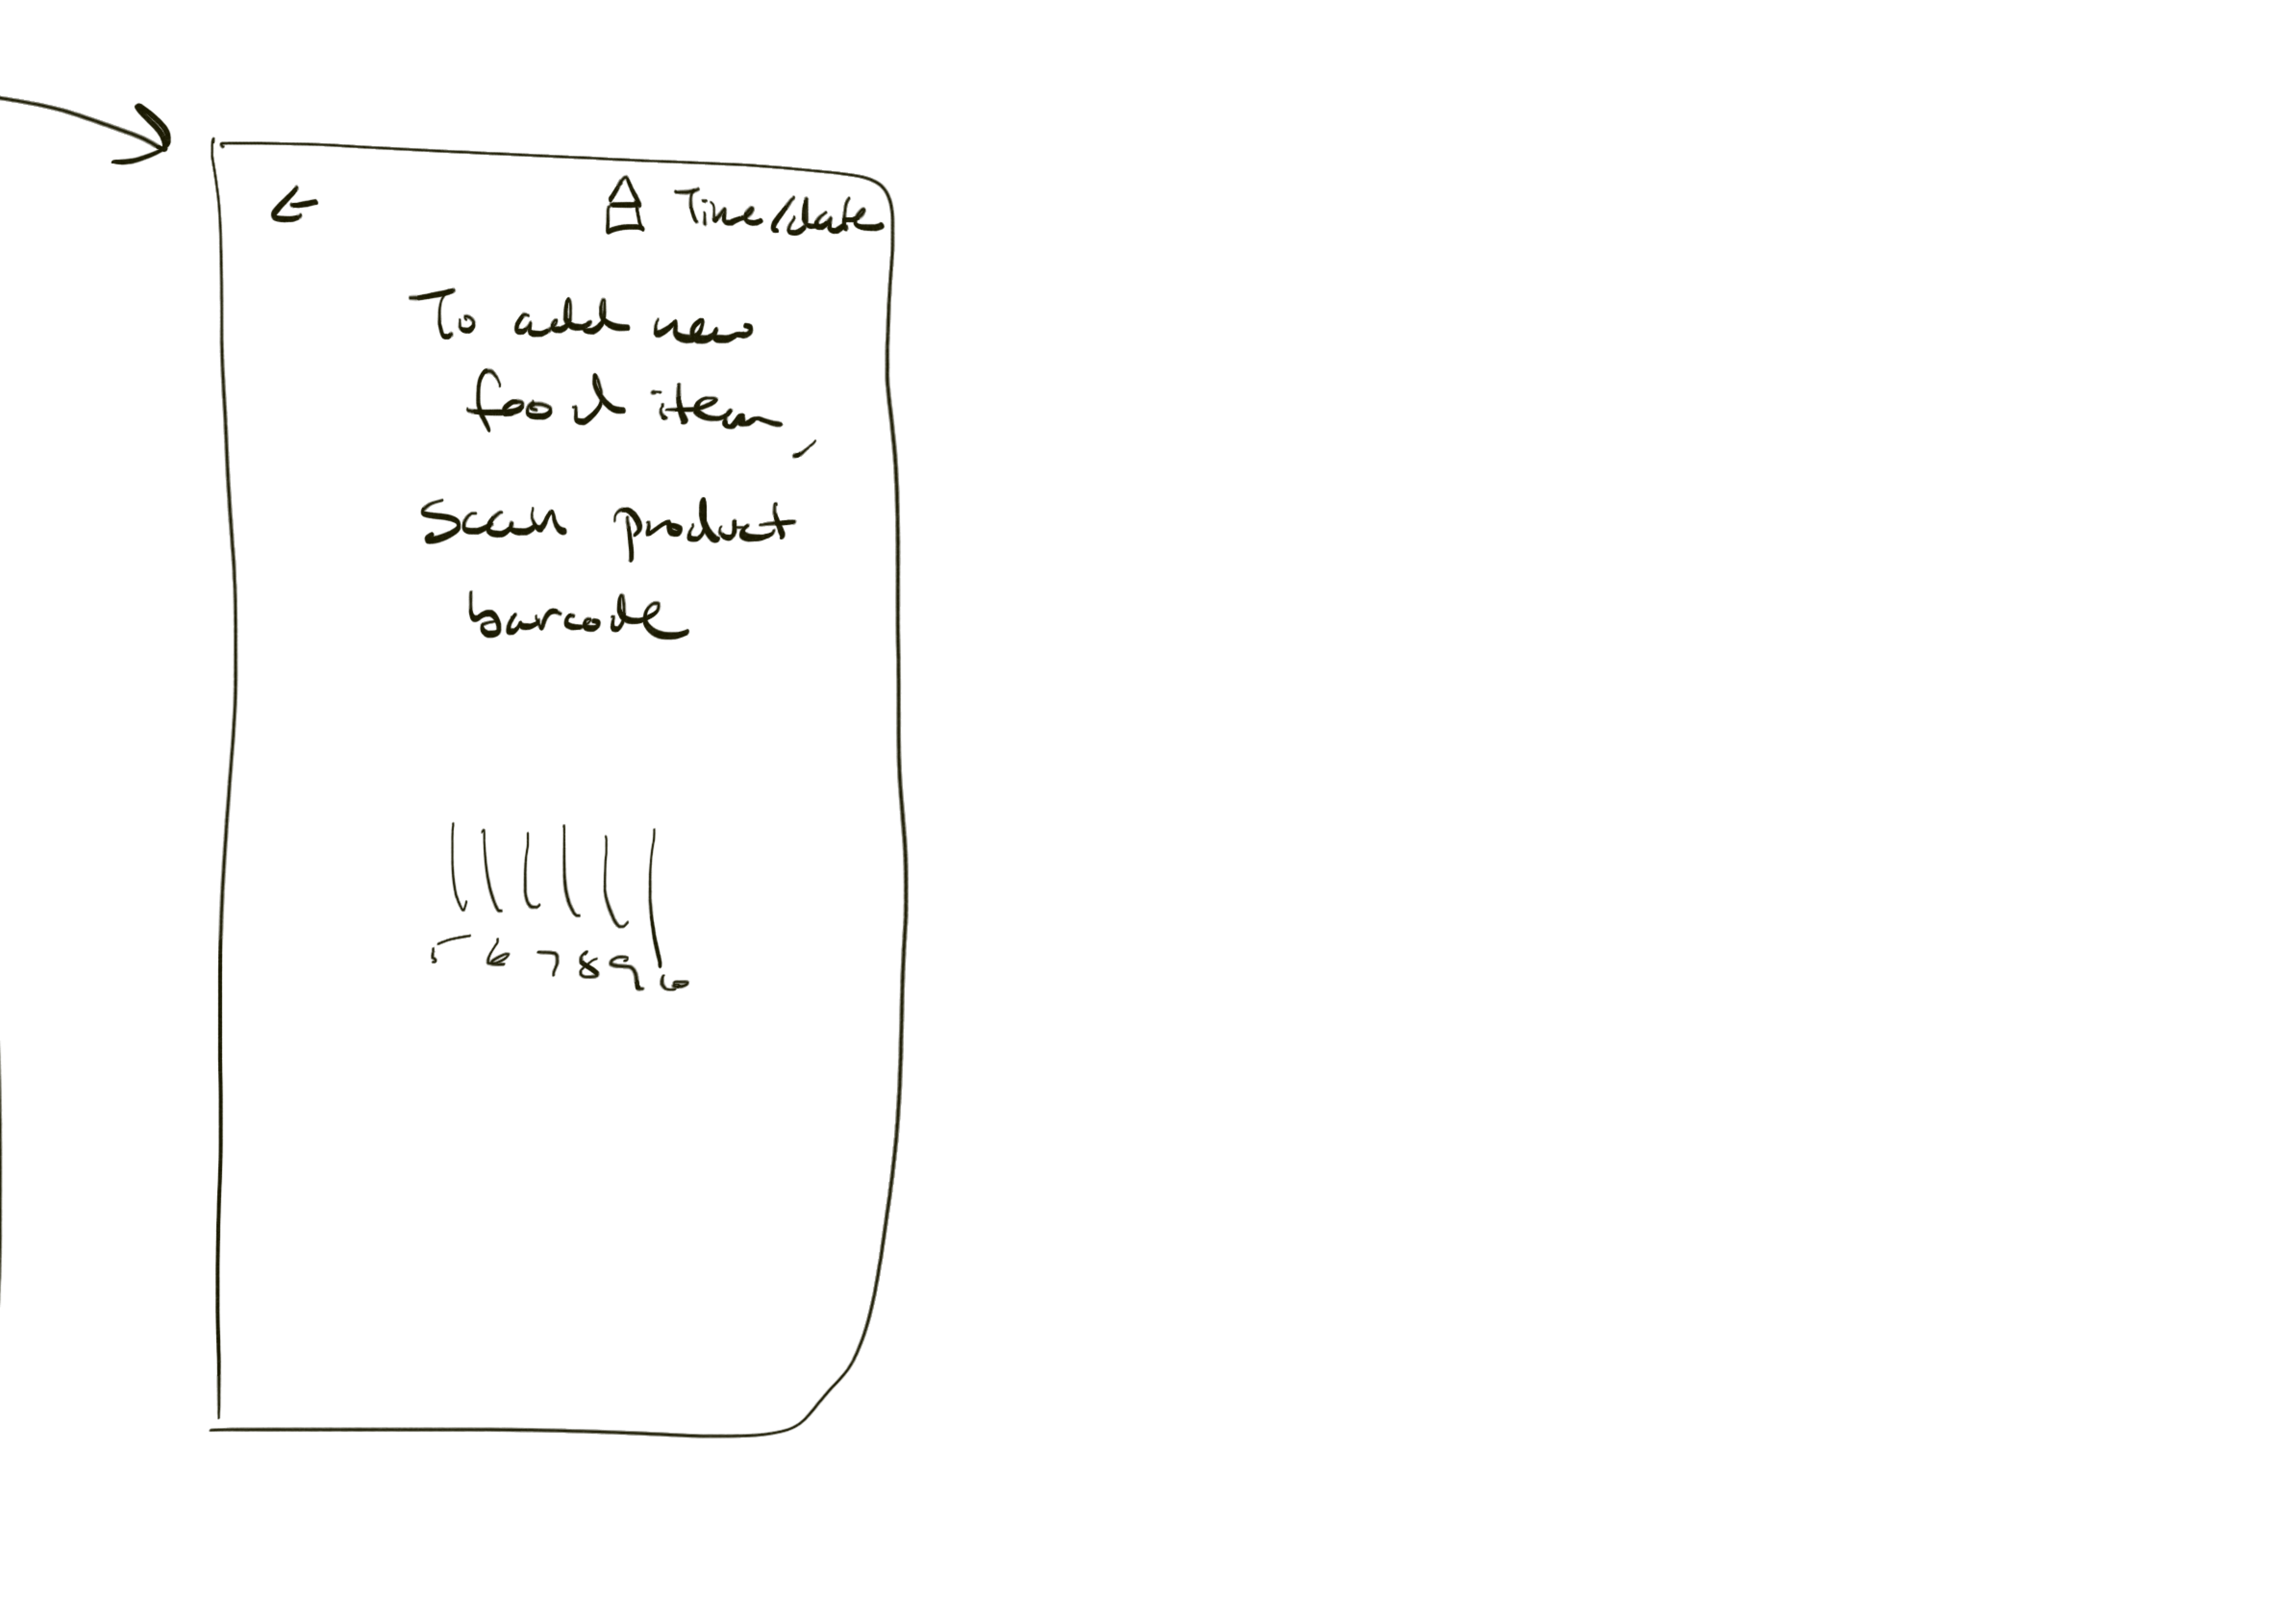 Time/date
To add new
food item,
Scan product
barcode
5 6 7 8 9 0